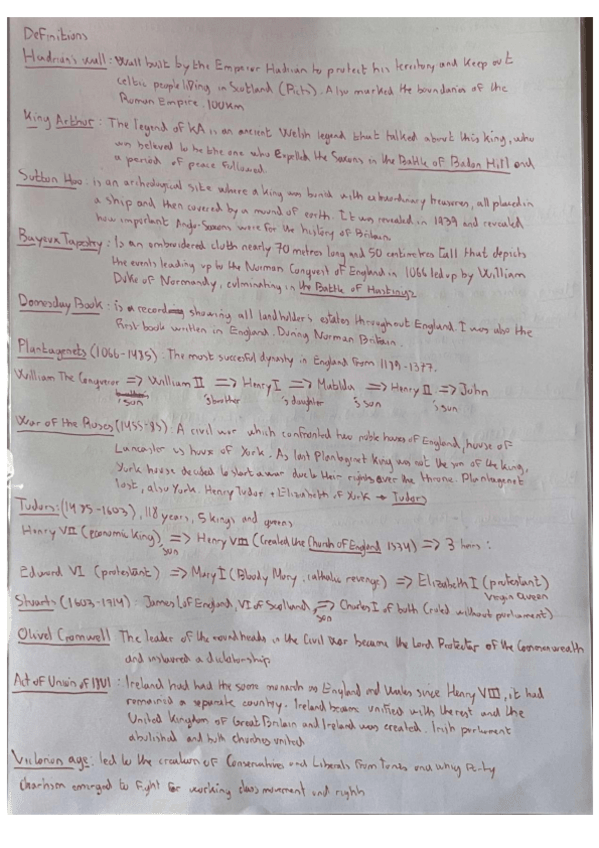 Definitions
Hadrian's wall: Wall built by the Emperor Hadrian to protect his territory and keep out
celtic people living in Scotland (Picts). Also marked the boundaries of the
Roman Empire. 100km
King Arthur: The legend of KA is an ancient Welsh legend that talked about this king, who
was believed to be the one who expelled the Saxons in the Battle of Badon Hill and
a period of peace followed.
Sutton Hoo: is an archeological site where a king was buried with extraordinary treasures, all placed in
a ship and then covered by a mound of earth. It was revealed in 1939 and revealed
how important Anglo-Saxons were for the history of Britain.
Bayeux Tapestry: Is an embroidered cloth nearly 70 metres long and 50 centimetres tall that depicts
the events leading up to the Norman Conquest of England in 1066 led up by William
Duke of Normandy, culminating in the Battle of Hastings
Domesday Book: is a record showing all landholder's estates throughout England. I was also the
first book written in England. During Norman Britain.
Plantagenets (1066-1485): The most succesful dynasty in England from 1189-1377.
William The Conqueror => William II => Henry I => Matilda => Henry II => John
's son 's brother 's daughter 's son 's son
War of the Roses (1455-85): A civil war which confronted two noble houses of England, house of
Lancaster vs house of York. As last Plantagenet king was not the son of the king,
York house decided to start a war due to their rights over the throne. Plantagenet
lost, also York. Henry Tudor + Elizabeth of York → Tudors
Tudors: (1485-1603), 118 years, 5 kings and queens
Henry VII (economic king) => Henry VIII (Created the Church of England 1534) => 3 heirs:
son
Edward VI (protestant) => Mary I (Bloody Mary, catholic revenge) => Elizabeth I (protestant)
Virgin Queen
Stuarts (1603-1714): James I of England, VI of Scotland, => Charles I of both (ruled without parliament)
son
Oliver Cromwell The leader of the roundheads in the Civil War became the Lord Protector of the Commonwealth
and instaured a dictatorship
Act of Union of 1801: Ireland had had the same monarch as England and Wales since Henry VIII, it had
remained a separate country. Ireland became unified with the rest and the
United Kingdom of Great Britain and Ireland was created. Irish parliament
abolished and both churches united
Victorian age: led to the creation of Conservatives and Liberals from Tories and Whig Party
Chartism emerged to fight for working class movement and rights